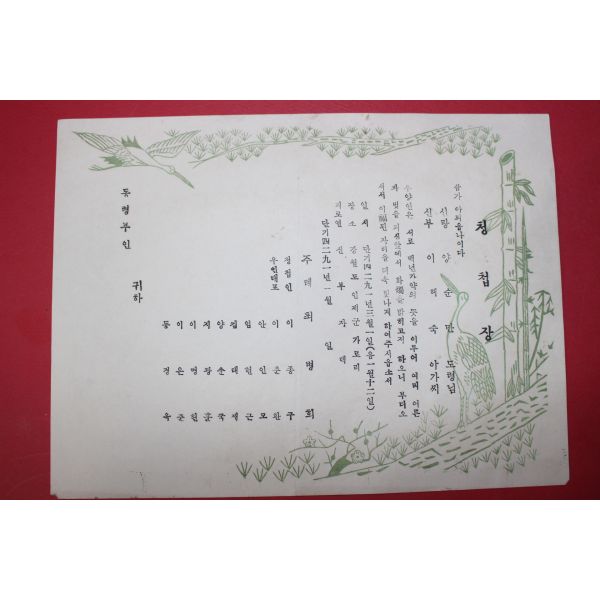 청첩장
삼가 아뢰옵나이다
신랑 양 순 만 도령님
신부 이 숙 아가씨
우 양인은 서로 백년가약의 뜻을 이루어 여러 어른
과 벗을 모신 앞에서 화촉을 밝히고저 하오니 부디 오
셔서 이 福된 자리를 더욱 빛나게 하여주시옵소서
일시 단기四二九一年三月一日(음一월十二일)
장소 강원도 인제군 가로리
피로연 신부자택
단기四二九一年一월 일
주례 최 병 희
청첩인 이 종 구
우인대표 이 춘 환
안 인 모
임 근
양 순 국
지 광
이 명 헌
이 은 준
동 경 옥
통령부인 귀하